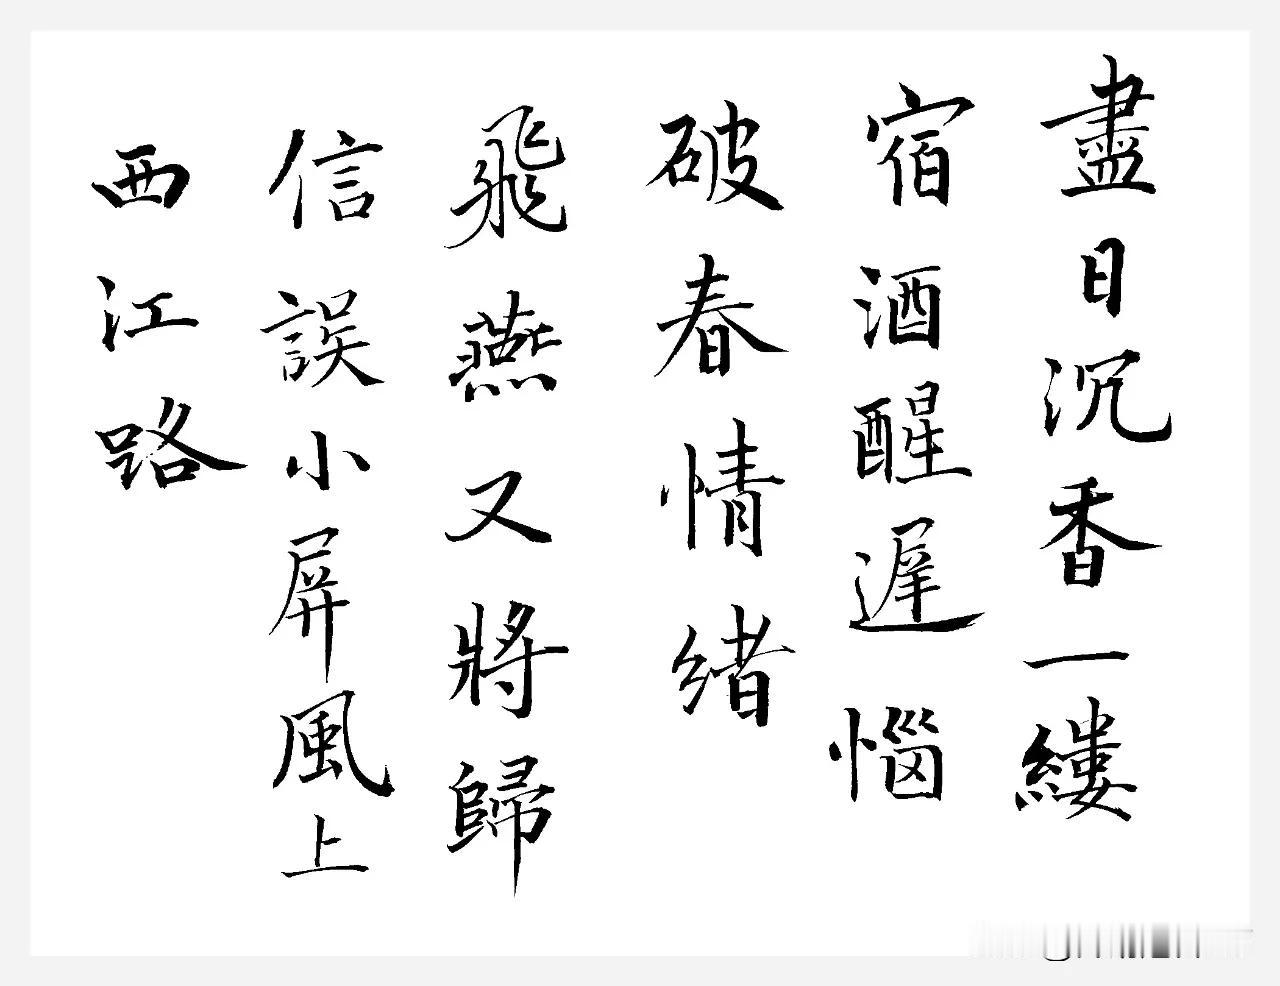 盡日沉香一縷
宿酒醒遲惱
破春情緒
飛燕又將歸
信誤小屏風上
西江路